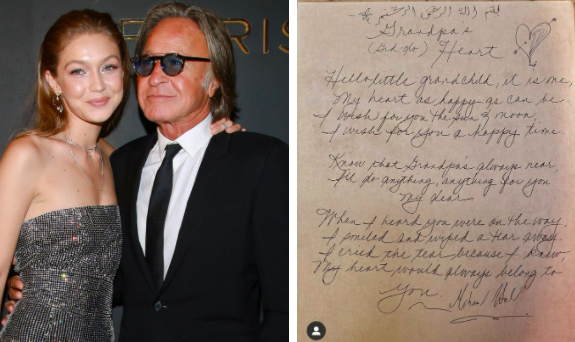 RIS
بسم الله الرحمن الرحيم
Grandpa's
Heart
Hello little grandchild, it is me,
My heart as happy as can be
I wish for you the sun & moon,
I wish for you a happy time.
Know that Grandpas always near,
I'll do anything, anything for you
my dear
When I heard you were on the way,
I smiled and wiped a tear away
I cried the tear because I knew
My heart would always belong to
you.